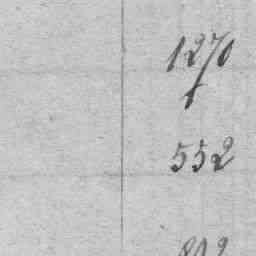 1270
552